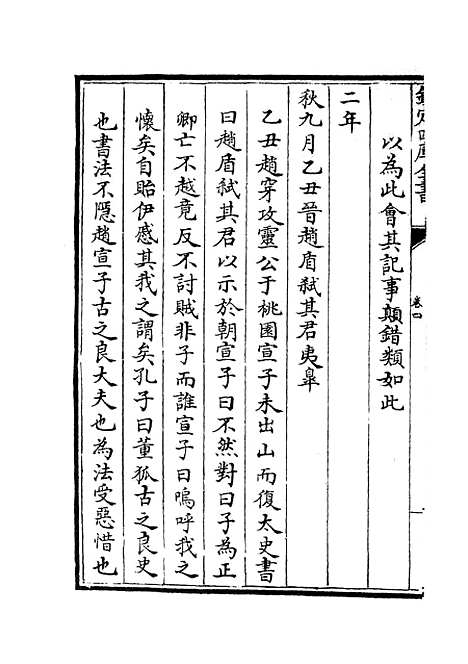 欽定四庫全書
卷四
以為此會其記事顛錯類如此
二年
秋九月乙丑晉趙盾弑其君夷臯
乙丑趙穿攻靈公于桃園宣子未出山而復太史書
曰趙盾弑其君以示於朝宣子曰不然對曰子為正
卿亡不越竟反不討賊非子而誰宣子曰嗚呼我之
懷矣自貽伊慼其我之謂矣孔子曰董狐古之良史
也書法不隱趙宣子古之良大夫也為法受惡惜也